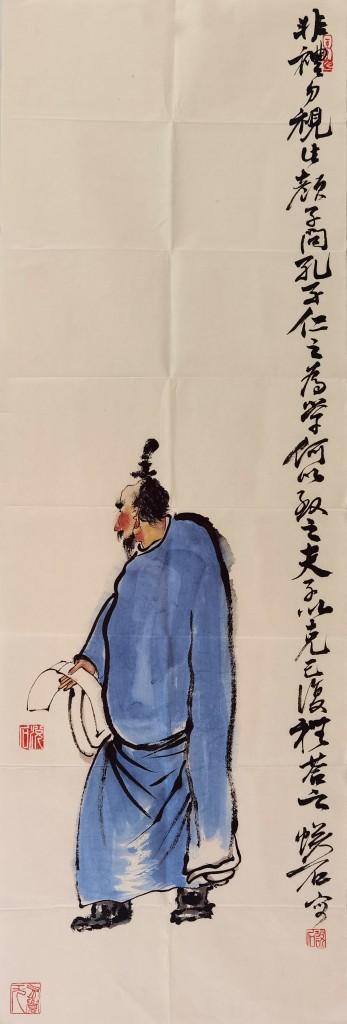 非禮勿視 昔顏子問孔子仁之為學何以致之夫子以克己復禮答之 石寫